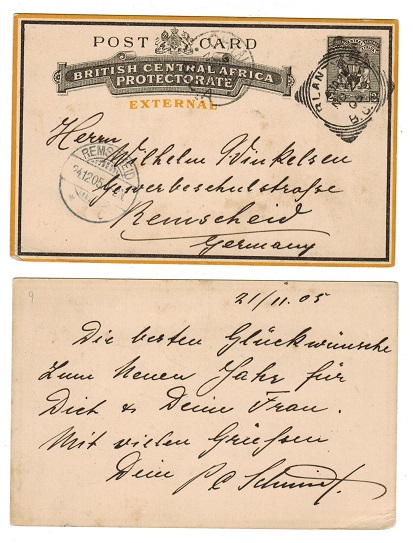 POST CARD
BRITISH CENTRAL AFRICA
PROTECTORATE
EXTERNAL
BLAN
B.C.
REMSCHEID
24.12.05
Herrn
Wilhelm Winkelsen
Gewerbeschulstrasse
Remscheid
Germany
9
21/11.05
Die besten Glückwünsche
zum Neuen Jahr für
Dich & Deine Frau.
Mit vielen Grüssen
Dein P C Schmidt.